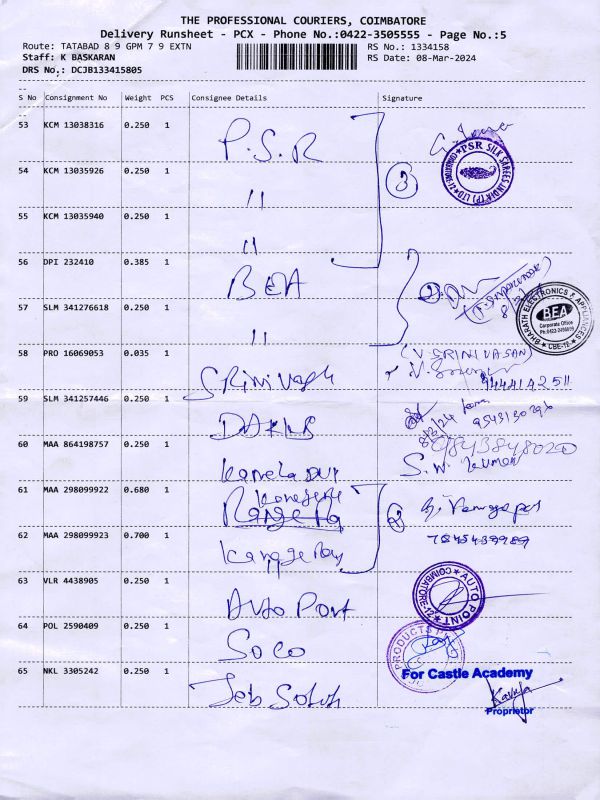 THE PROFESSIONAL COURIERS, COIMBATORE
Delivery Runsheet - PCX - Phone No.:0422-3505555 - Page No.:5
Route: TATABAD 8 9 GPM 7 9 EXTN
RS No.: 1334158
Staff: K BASKARAN
RS Date: 08-Mar-2024
DRS No.: DCJB133415805
S No Consignment No Weight PCS Consignee Details Signature
53 KCM 13038316 0.250 1 P.S.R
PSR SILK SAREES INDIA (P) LTD
54 KCM 13035926 0.250 1 "
3
55 KCM 13035940 0.250 1 "
56 DPI 232410 0.385 1 BEA
57 SLM 341276618 0.250 1 "
BHARATH ELECTRONICS & APPLIANCES
BEA
Corporate Office
CBE-12
58 PRO 16069053 0.035 1 Srinivash
(V. SRINIVASAN)
9444142511
59 SLM 341257446 0.250 1
9543130296
60 MAA 864198757 0.250 1
9843848020
S.W. Kumar
61 MAA 298099922 0.680 1
2
62 MAA 298099923 0.700 1
63 VLR 4438905 0.250 1 Auto Point
AUTO POINT
COIMBATORE-12
64 POL 2590409 0.250 1 Soco
PRODUCTS
65 NKL 3305242 0.250 1
For Castle Academy
Proprietor